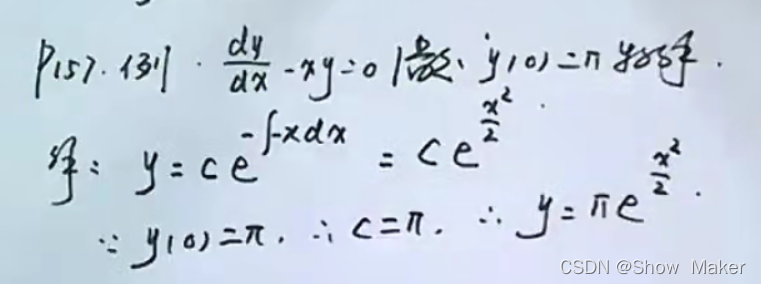 P157.例1. dy/dx - xy = 0 满足 y(0) = π 的解.
解: y = ce^{-∫-xdx} = ce^{x²/2}.
∵ y(0) = π. ∴ c = π. ∴ y = πe^{x²/2}.
CSDN @Show Maker